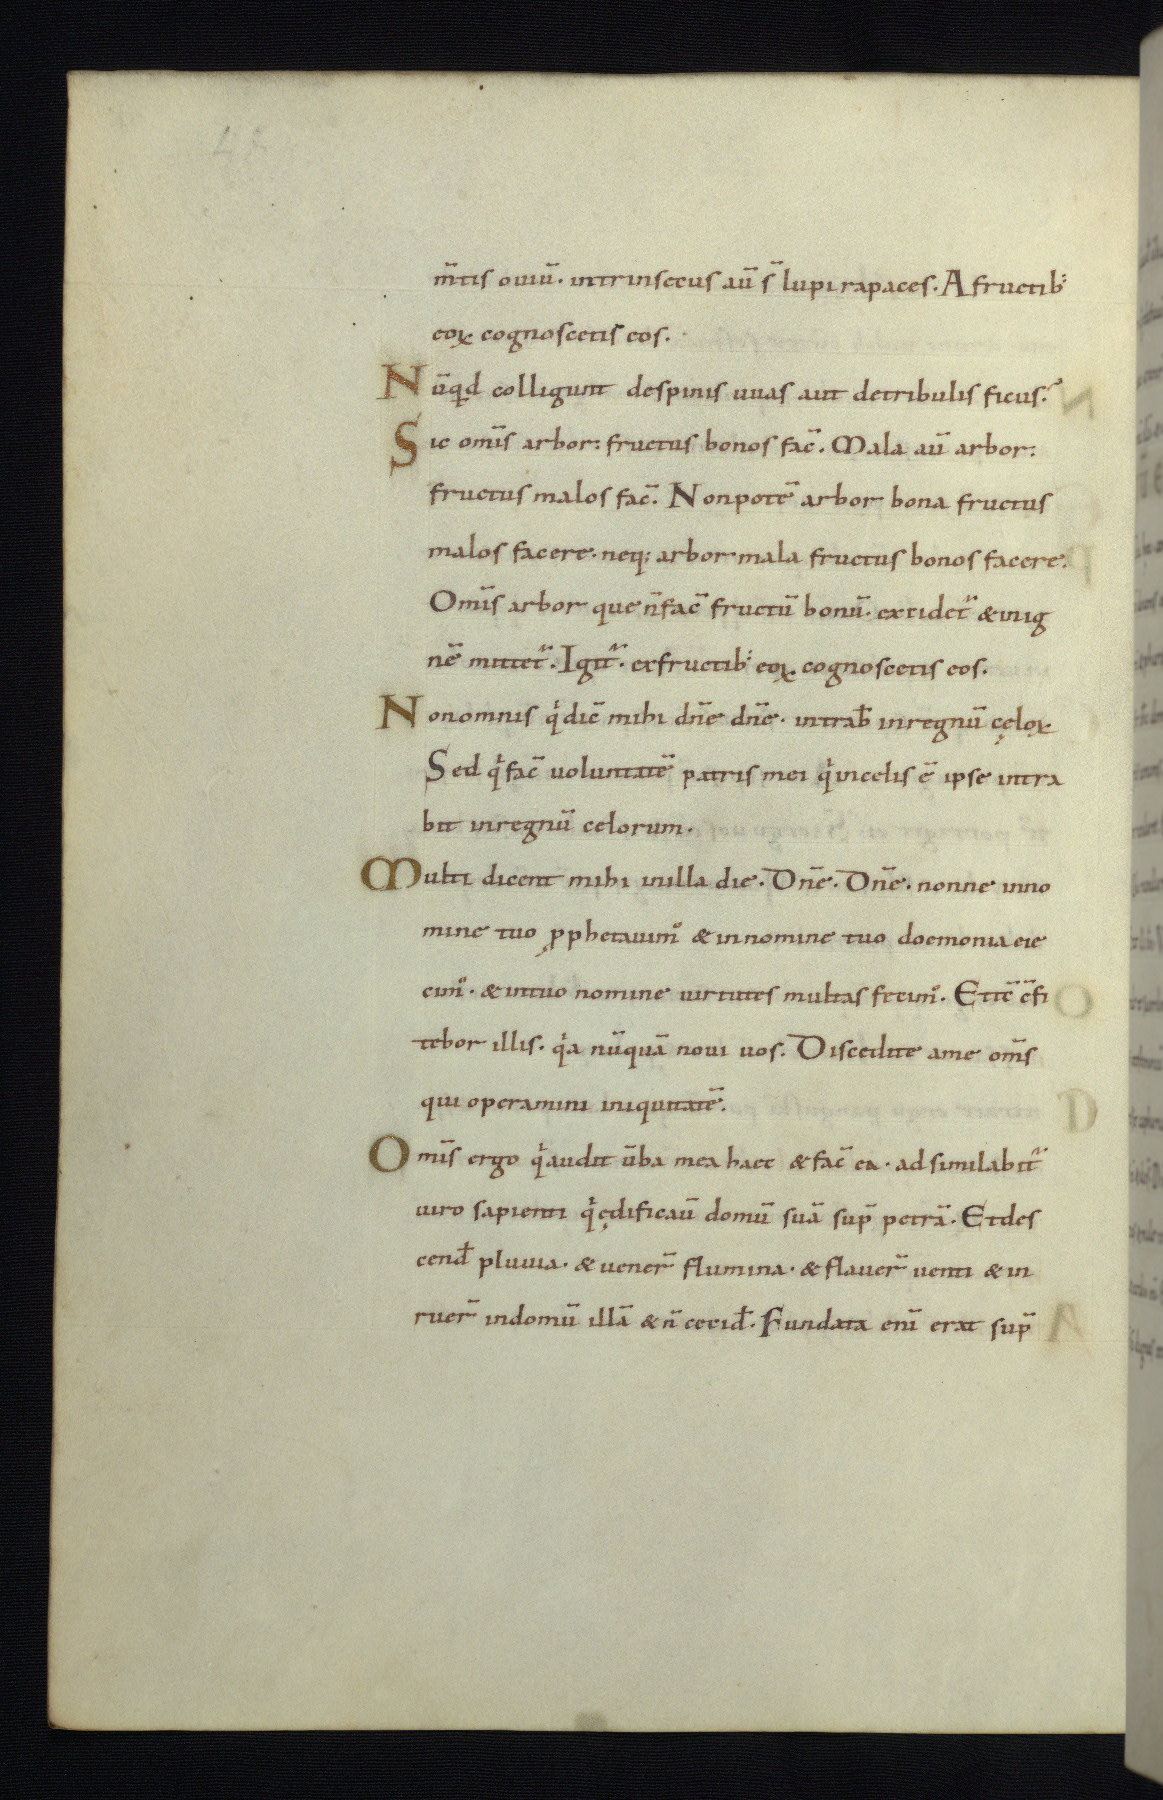 m̄tis ouiū. intrinsecus aū s̄ lupi rapaces. A fructib;
eoꝝ cognoscetis eos.
Nūqd colligunt despinis uuas aut detribulis ficus?
Sic om̄s arbor: fructus bonos fac̄. Mala aū arbor:
fructus malos fac̄. Nonpotē arbor bona fructus
malos facere. neq; arbor mala fructus bonos facere.
Om̄is arbor que n̄fac̄ fructū bonū. excidet̄ & inig
nē mittet̄. Igit̄. exfructib; eoꝝ cognoscetis eos.
Nonomnis q̇dic̄ mihi dn̄e dn̄e. intrab̄ inregnū cęloꝝ
Sed q̇fac̄ uoluntatē patris mei q̇incelis ē ipse intra
bit inregnū celorum.
Multi dicent mihi inilla die. Dn̄e. Dn̄e. nonne inno
mine tuo ꝓphetauim᷒ & innomine tuo doemonia eie
cim᷒. & intuo nomine uirtutes multas fecim᷒. Et tc̄ c̄fi
tebor illis. q̇a nūquā noui uos. Discedite ame om̄s
qui operamini iniquitatē.
Om̄is ergo q̇audit ūba mea haec & fac̄ ea. ad similabit̄
uiro sapienti q̇ędificaū domū suā sup̄ petrā. Et des
cend̄ pluuia. & uener̄ flumina. & flauer̄ uenti & in
ruer̄ indomū illā & n̄ cecid̄. Fundata eni̅ erat sup̄